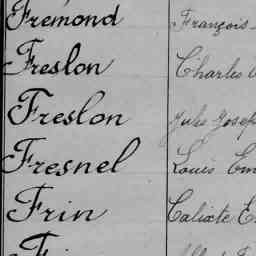 Fremond François
Freslon Charles
Freslon Jules Josep
Fresnel Louis Em
Frin Calixte E